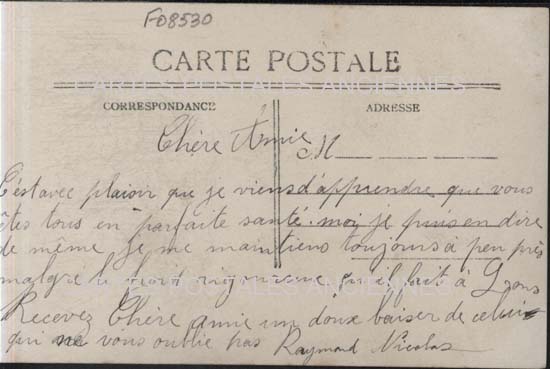 F08530
CARTE POSTALE
CARTES POSTALES ANCIENNES
CORRESPONDANCE
ADRESSE
Chère Amie
M
C'est avec plaisir que je viens d'apprendre que vous
êtes tous en parfaite santé. moi je puis en dire
de même je me maintiens toujours à peu près
malgre le froid rigoureux qu'il fait à Lyons
POSTALES ANCIENNES
Recevez Chère amie un doux baiser de celui
qui ne vous oublie pas Raymond Nicolas